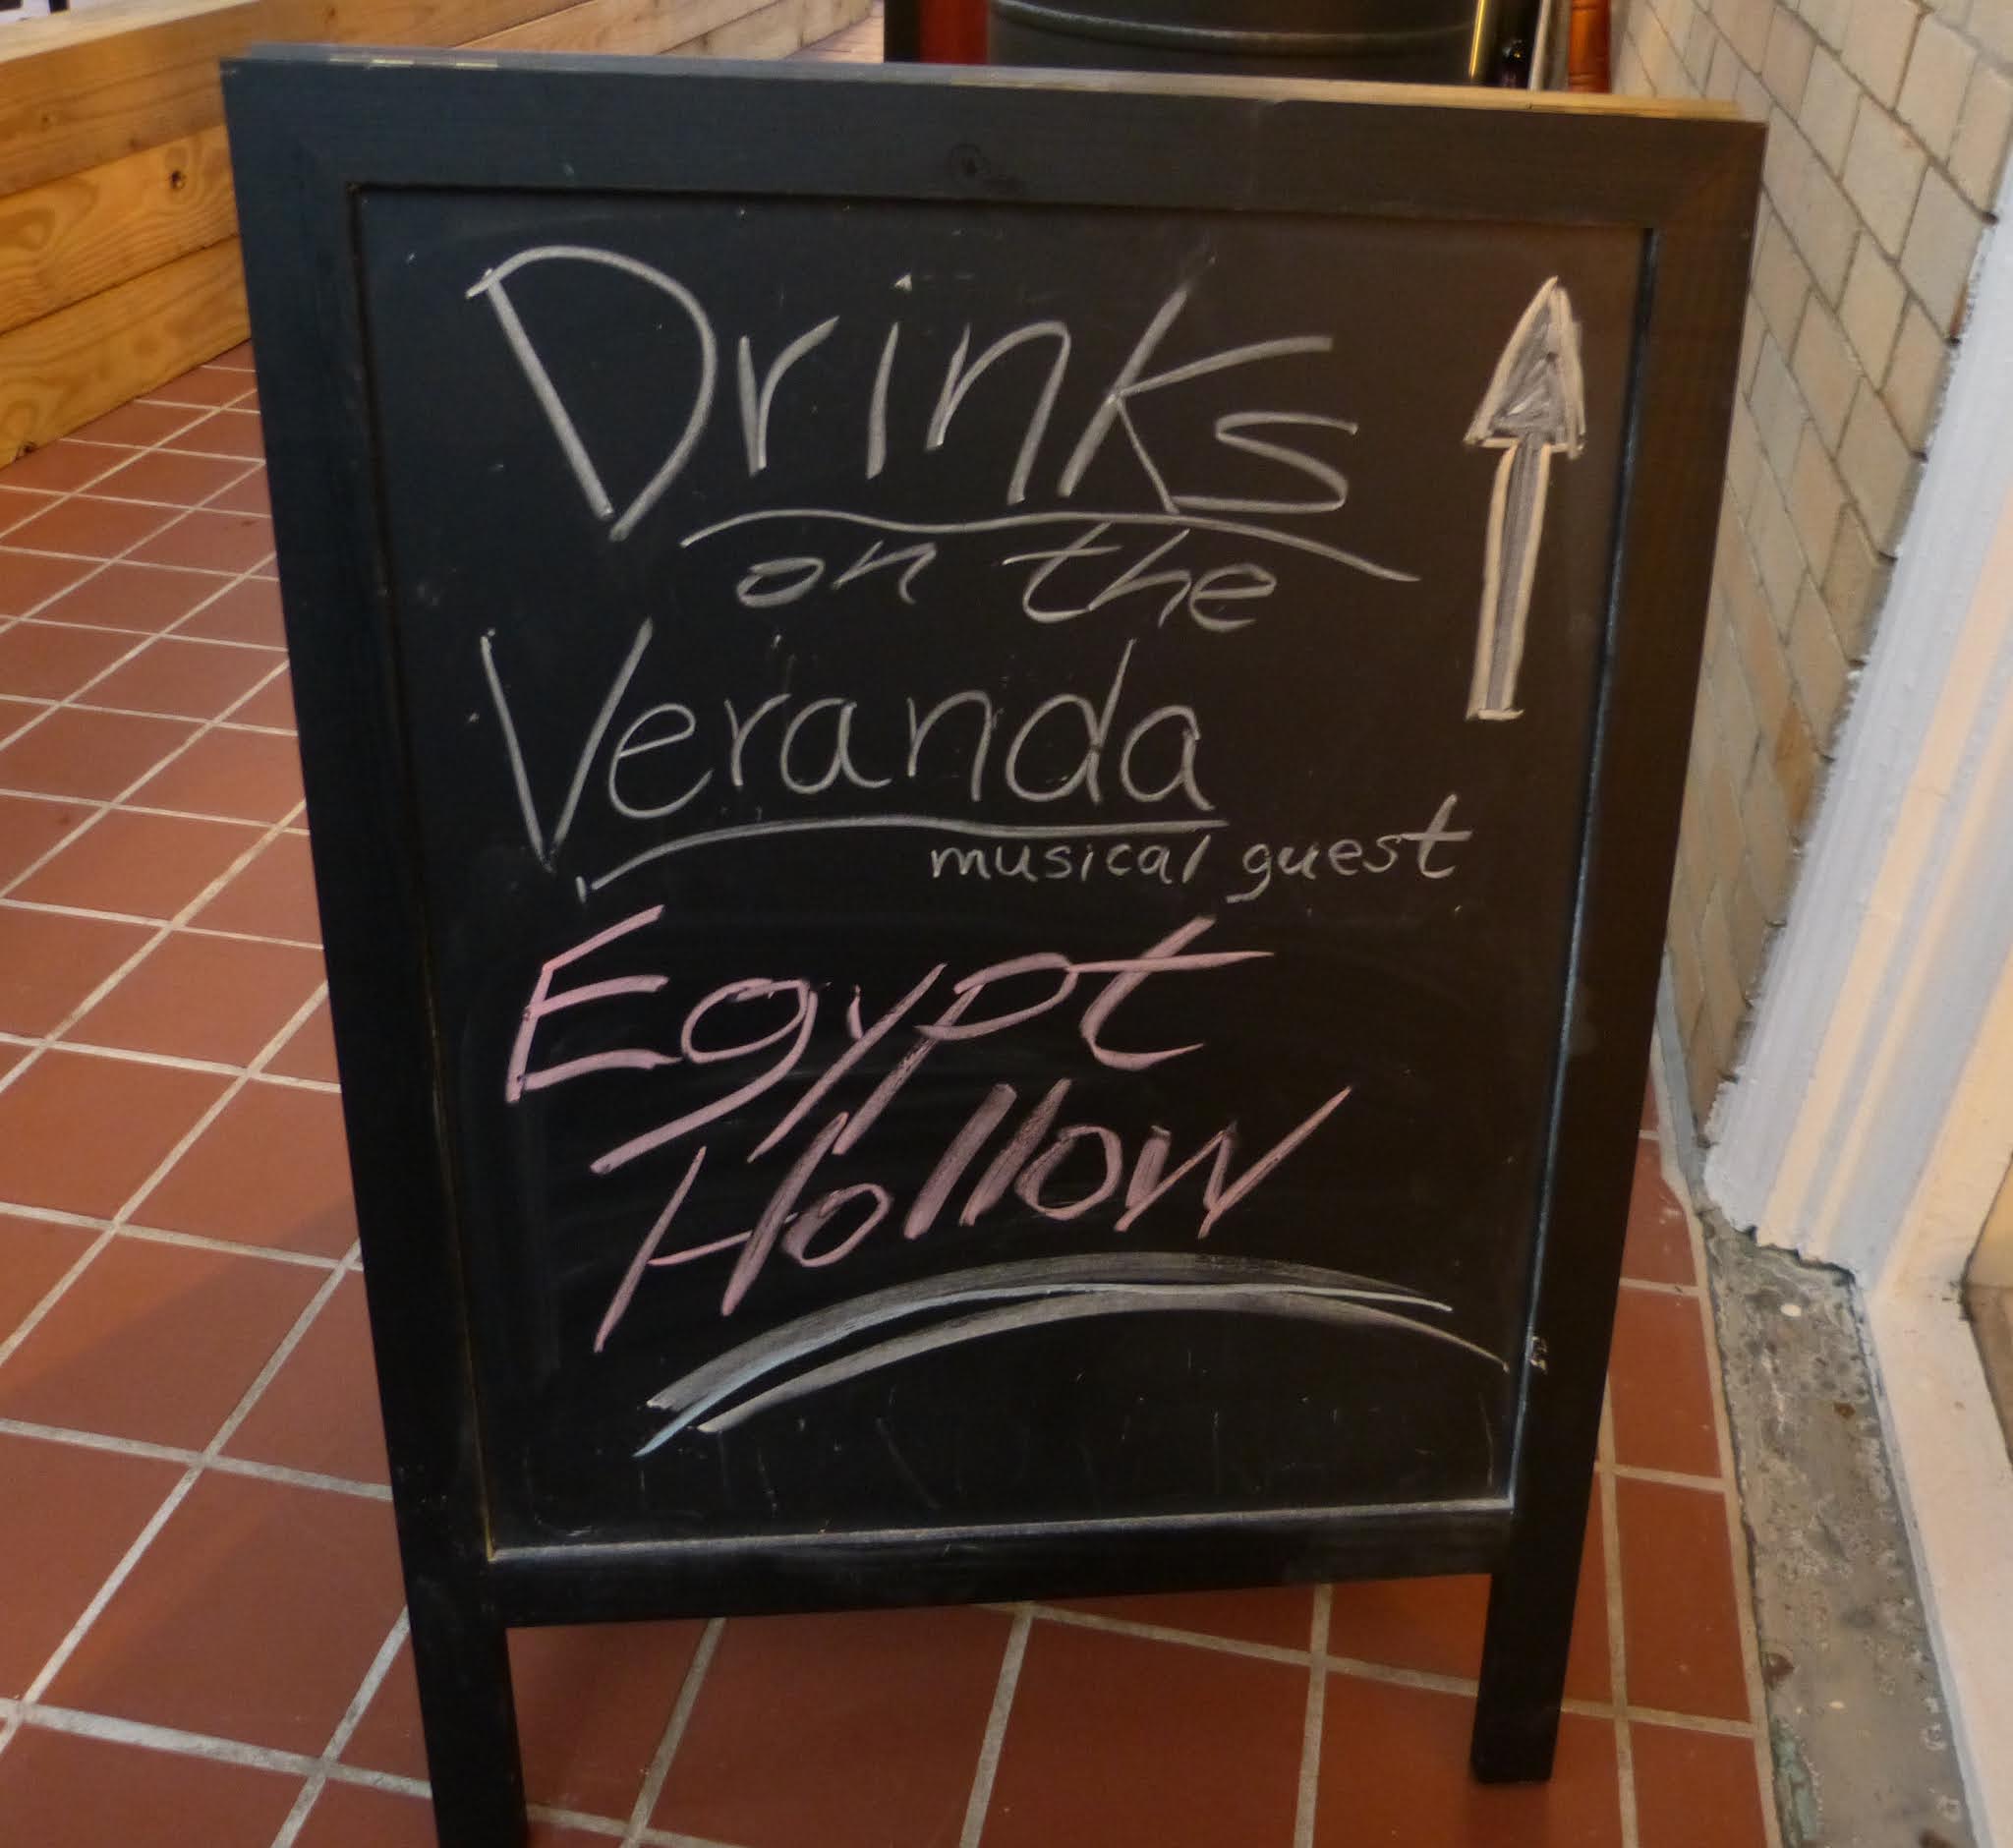 Drinks
on the
Veranda
musical guest
Egypt
Hollow